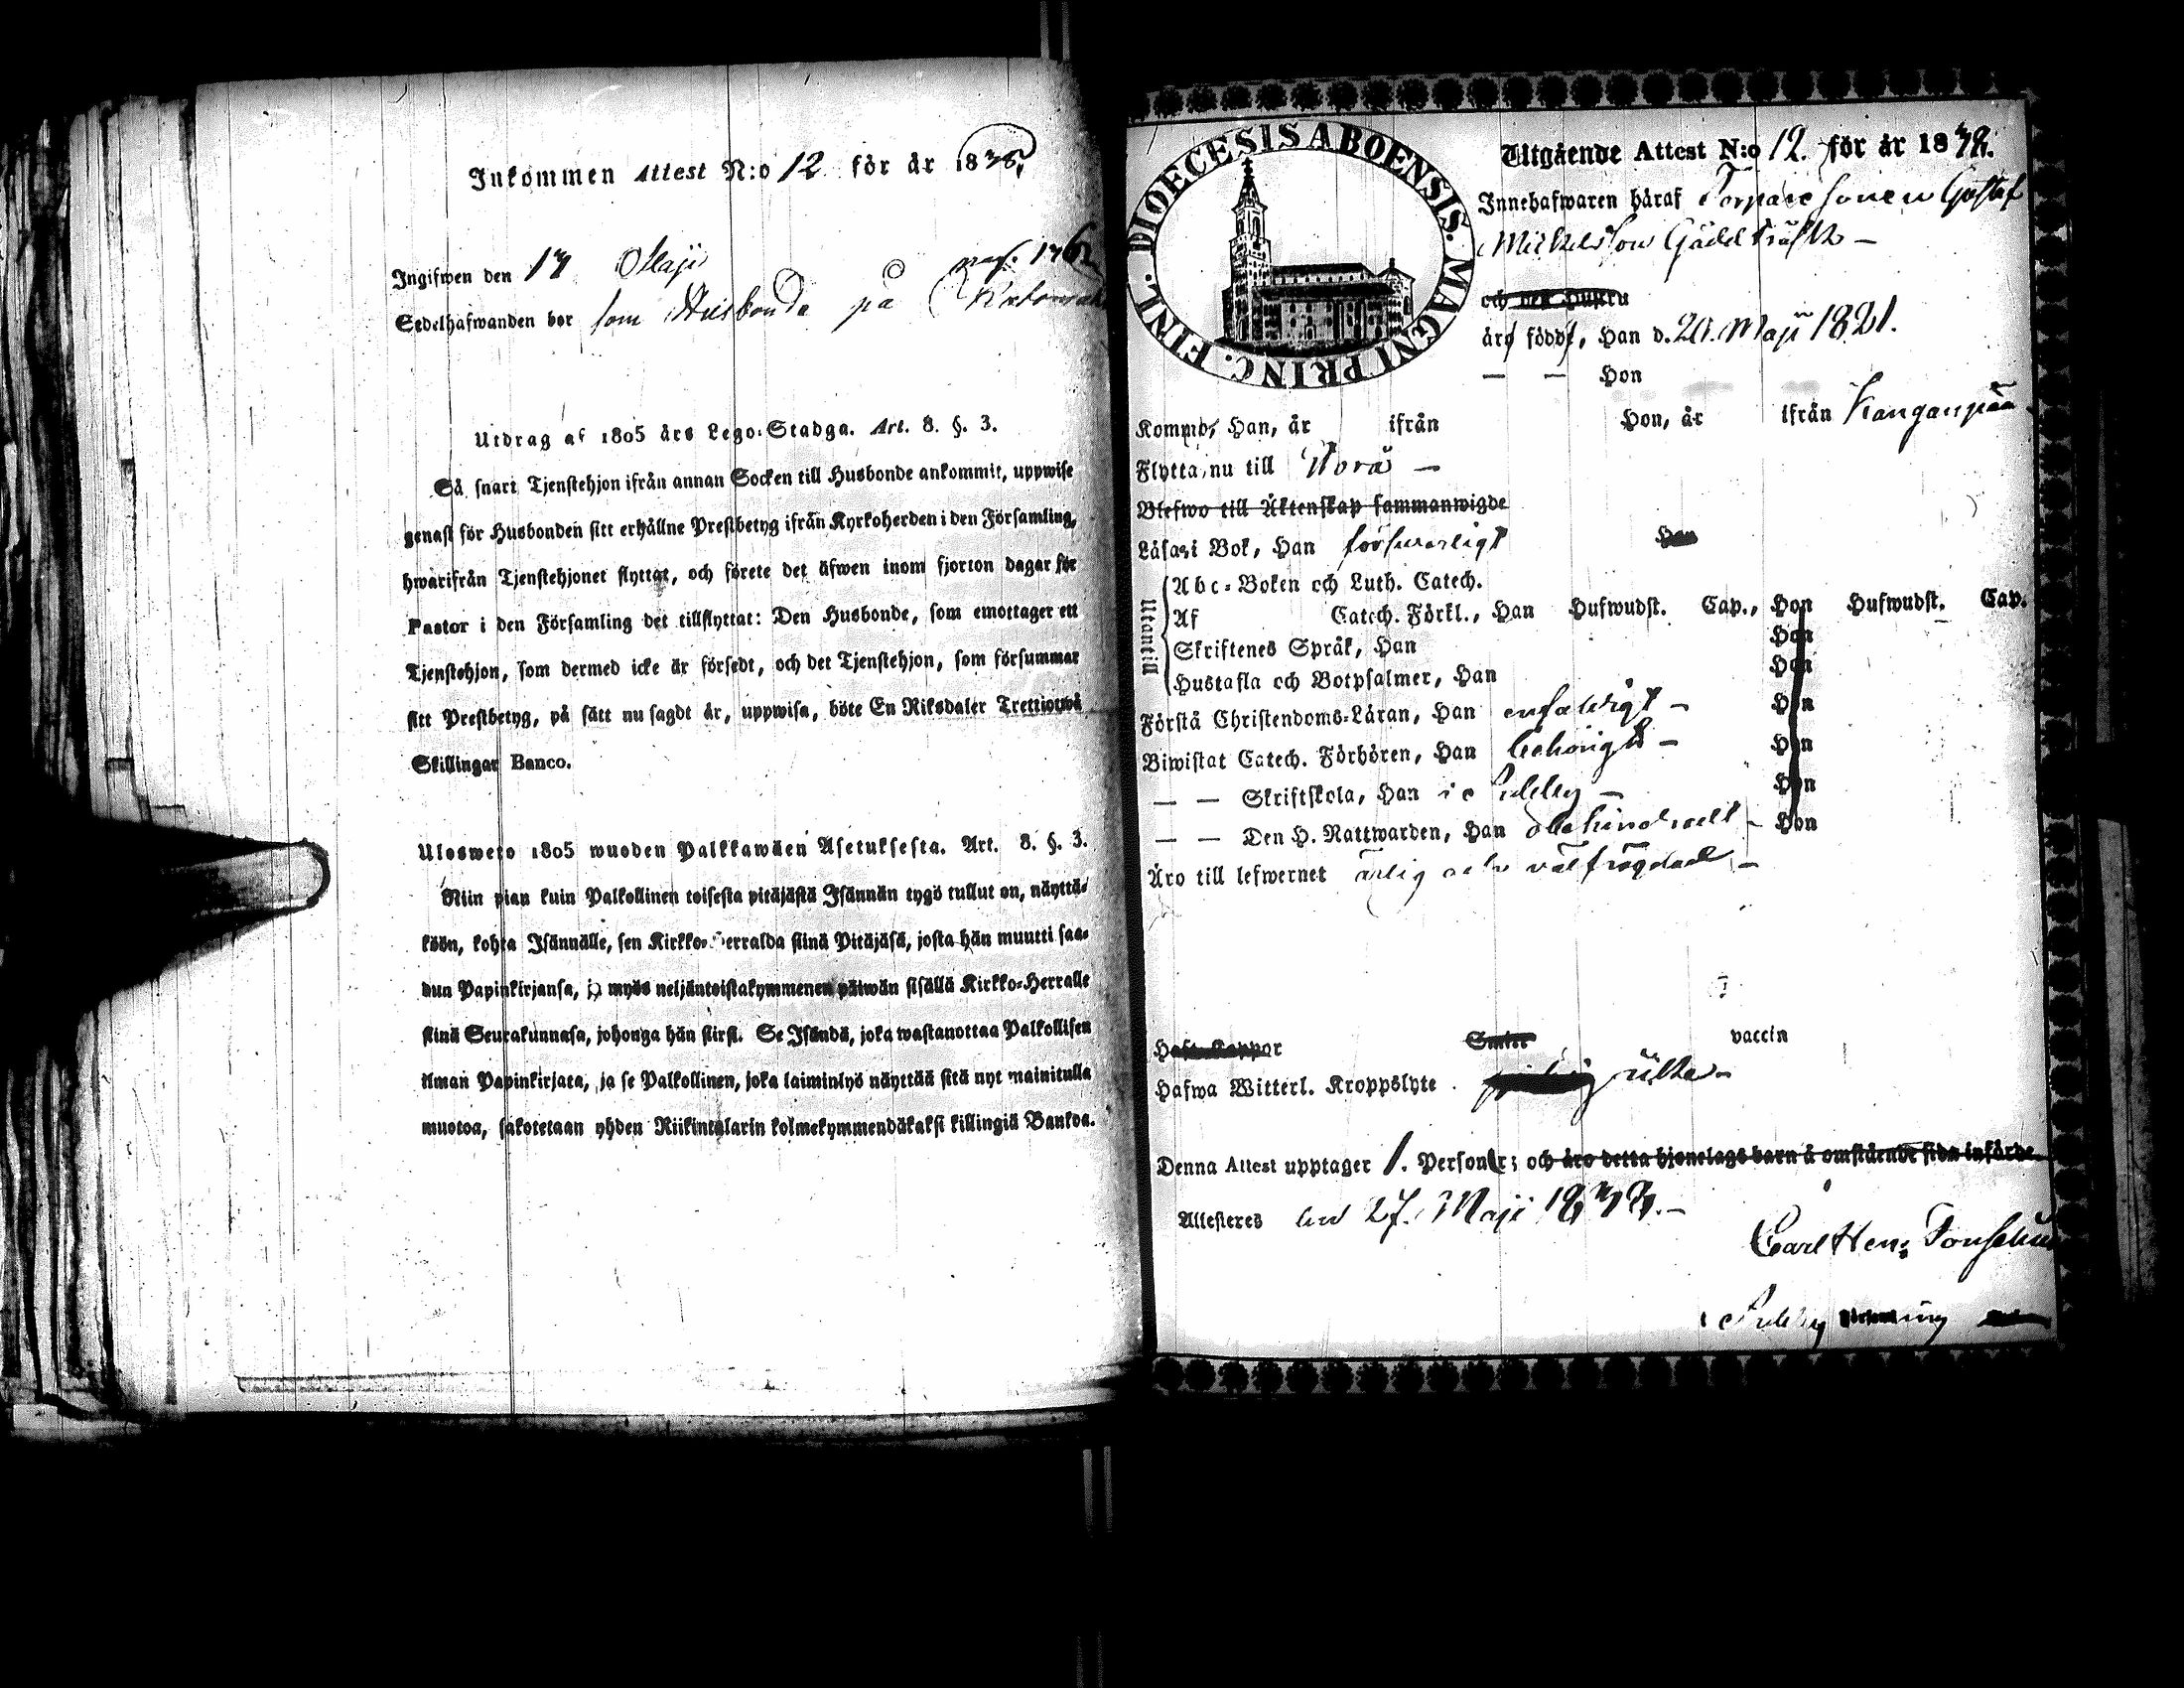 Inkommen Attest N:o 12 för år 1838,
pag. 176
Ingifwen den 17 Maji
Sedelhafwanden bor som Husbonde på
Utdrag af 1805 års Lego-Stadga. Art. 8. §. 3.
Så snart Tjenstehjon ifrån annan Socken till Husbonde ankommit, uppwise
genast för Husbonden sitt erhållne Prestbetyg ifrån Kyrkoherden i den Församling,
hwarifrån Tjenstehjonet flyttat, och förete det äfwen inom fjorton dagar för
Pastor i den Församling det tillflyttat: Den Husbonde, som emottager ett
Tjenstehjon, som dermed icke är försedt, och det Tjenstehjon, som försummar
sitt Prestbetyg, på sätt nu sagdt är, uppwisa, böte En Riksdaler Trettiotwå
Skillingar Banco.
Ulosweto 1805 wuoden Palkkawäen Asetuksesta. Art. 8. §. 3.
Niin pian kuin Palkollinen toisesta pitäjästä Isännän tygö tullut on, näyttä-
köön, kohta Isännälle, sen Kirkko-Herralda siinä Pitäjäsä, josta hän muutti saa-
dun Papinkirjansa, ja myös neljäntoistakymmenen päiwän sisällä Kirkko-Herralle
siinä Seurakunnasa, johonga hän siirsi. Se Isändä, joka wastanottaa Palkollisen
ilman Papinkirjata, ja se Palkollinen, joka laiminlyö näyttää sitä nyt mainitulla
muotoa, sakotetaan yhden Riikintalarin kolmekymmendäkaksi killingiä Bankoa.
DIOECESIS ABOENSIS. MAGNI PRINC. FINL.
Utgående Attest N:o 12. för år 1838.
Innehafwaren häraf Torparesonen Gustaf
Michelsson Gäddträsk
och des Hustru
äro födde, Han d. 20. Maji 1821.
— — Hon
Kommo, Han, år ifrån Hon, år ifrån Kanganpää
Flytta nu till Norr
Blefwo till Äktenskap sammanwigde
Läsa i Bok, Han försvarligt Hon
Utantill
Abc-Boken och Luth. Catech.
Af Catech. Förkl., Han Hufwudst. Cap., Hon Hufwudst. Cap.
Skriftenes Språk, Han Hon
Hustafla och Botpsalmer, Han Hon
Förstå Christendoms-Läran, Han enfaldigt — Hon
Biwistat Catech. Förhören, Han behörigt — Hon
— — Skriftskola, Han i Pubby — Hon
— — Den H. Nattwarden, Han obehindradt — Hon
Äro till lefwernet ärlig och välfrägdad —
Haft Koppor Smitt vaccin
Hafwa Witterl. Kroppslyte icke —
Denna Attest upptager 1. Personer; och äro detta hjonelags barn å omstående sida införde
Attesteras den 27. Maji 1838. —
Carl Hen: